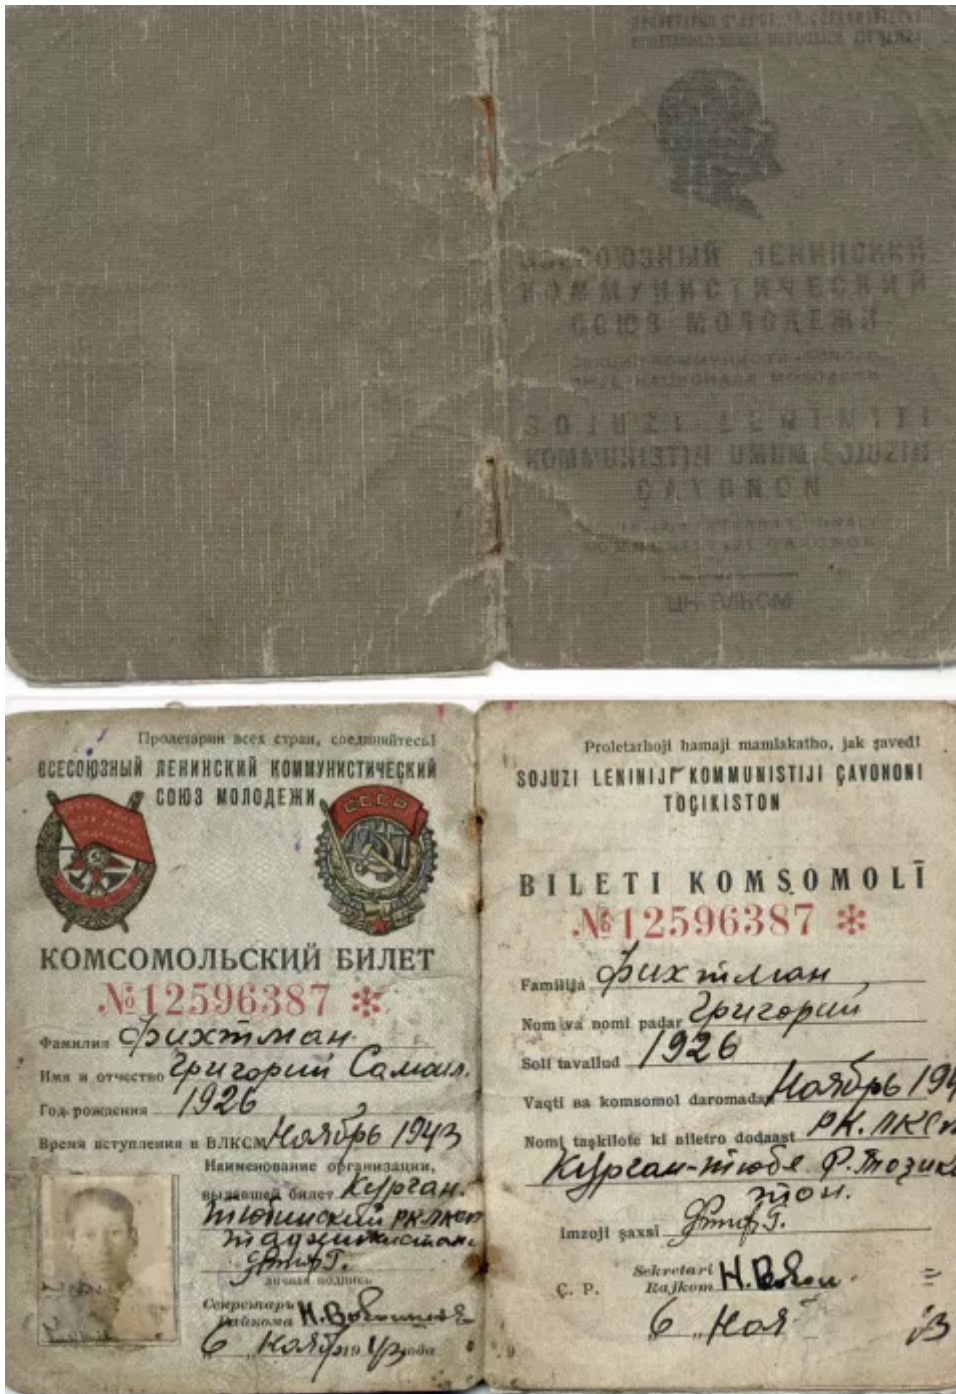 ВСЕСОЮЗНЫЙ ЛЕНИНСКИЙ
КОММУНИСТИЧЕСКИЙ
СОЮЗ МОЛОДЕЖИ
СЕКЦИЯ КОММУНИСТИЧЕСКОГО
ИНТЕРНАЦИОНАЛА МОЛОДЕЖИ
SOJUZI
ÇAVONON
ЦК ВЛКСМ
Пролетарии всех стран, соединяйтесь!
ВСЕСОЮЗНЫЙ ЛЕНИНСКИЙ КОММУНИСТИЧЕСКИЙ
СОЮЗ МОЛОДЕЖИ
СССР
КОМСОМОЛЬСКИЙ БИЛЕТ
№12596387 *
Фамилия Фихтман
Имя и отчество Григорий Самаил.
Год рождения 1926
Время вступления в ВЛКСМ Ноябрь 1943
Наименование организации,
выдавшей билет Курган.
Тюбинский РК
личная подпись
Секретарь
Райкома Н.
6 Ноя 1943 года
Proletarhoji hamaji mamlakatho, jak şaved!
SOJUZI LENINIJI KOMMUNISTIJI ÇAVONONI
TOÇIKISTON
BILETI KOMSOMOLĪ
№12596387 *
Familija Фихтман
Nom va nomi padar Григорий
Soli tavallud 1926
Vaqti ba komsomol daromadan Ноябрь 194
Nomi taşkilote ki biletro dodaast РК.ЛКСМ
Курган-тюбе Р. Тозики
тон.
Imzoji şaxsī
Ç. P.
Sekretari
Rajkom Н.
6 Ноя